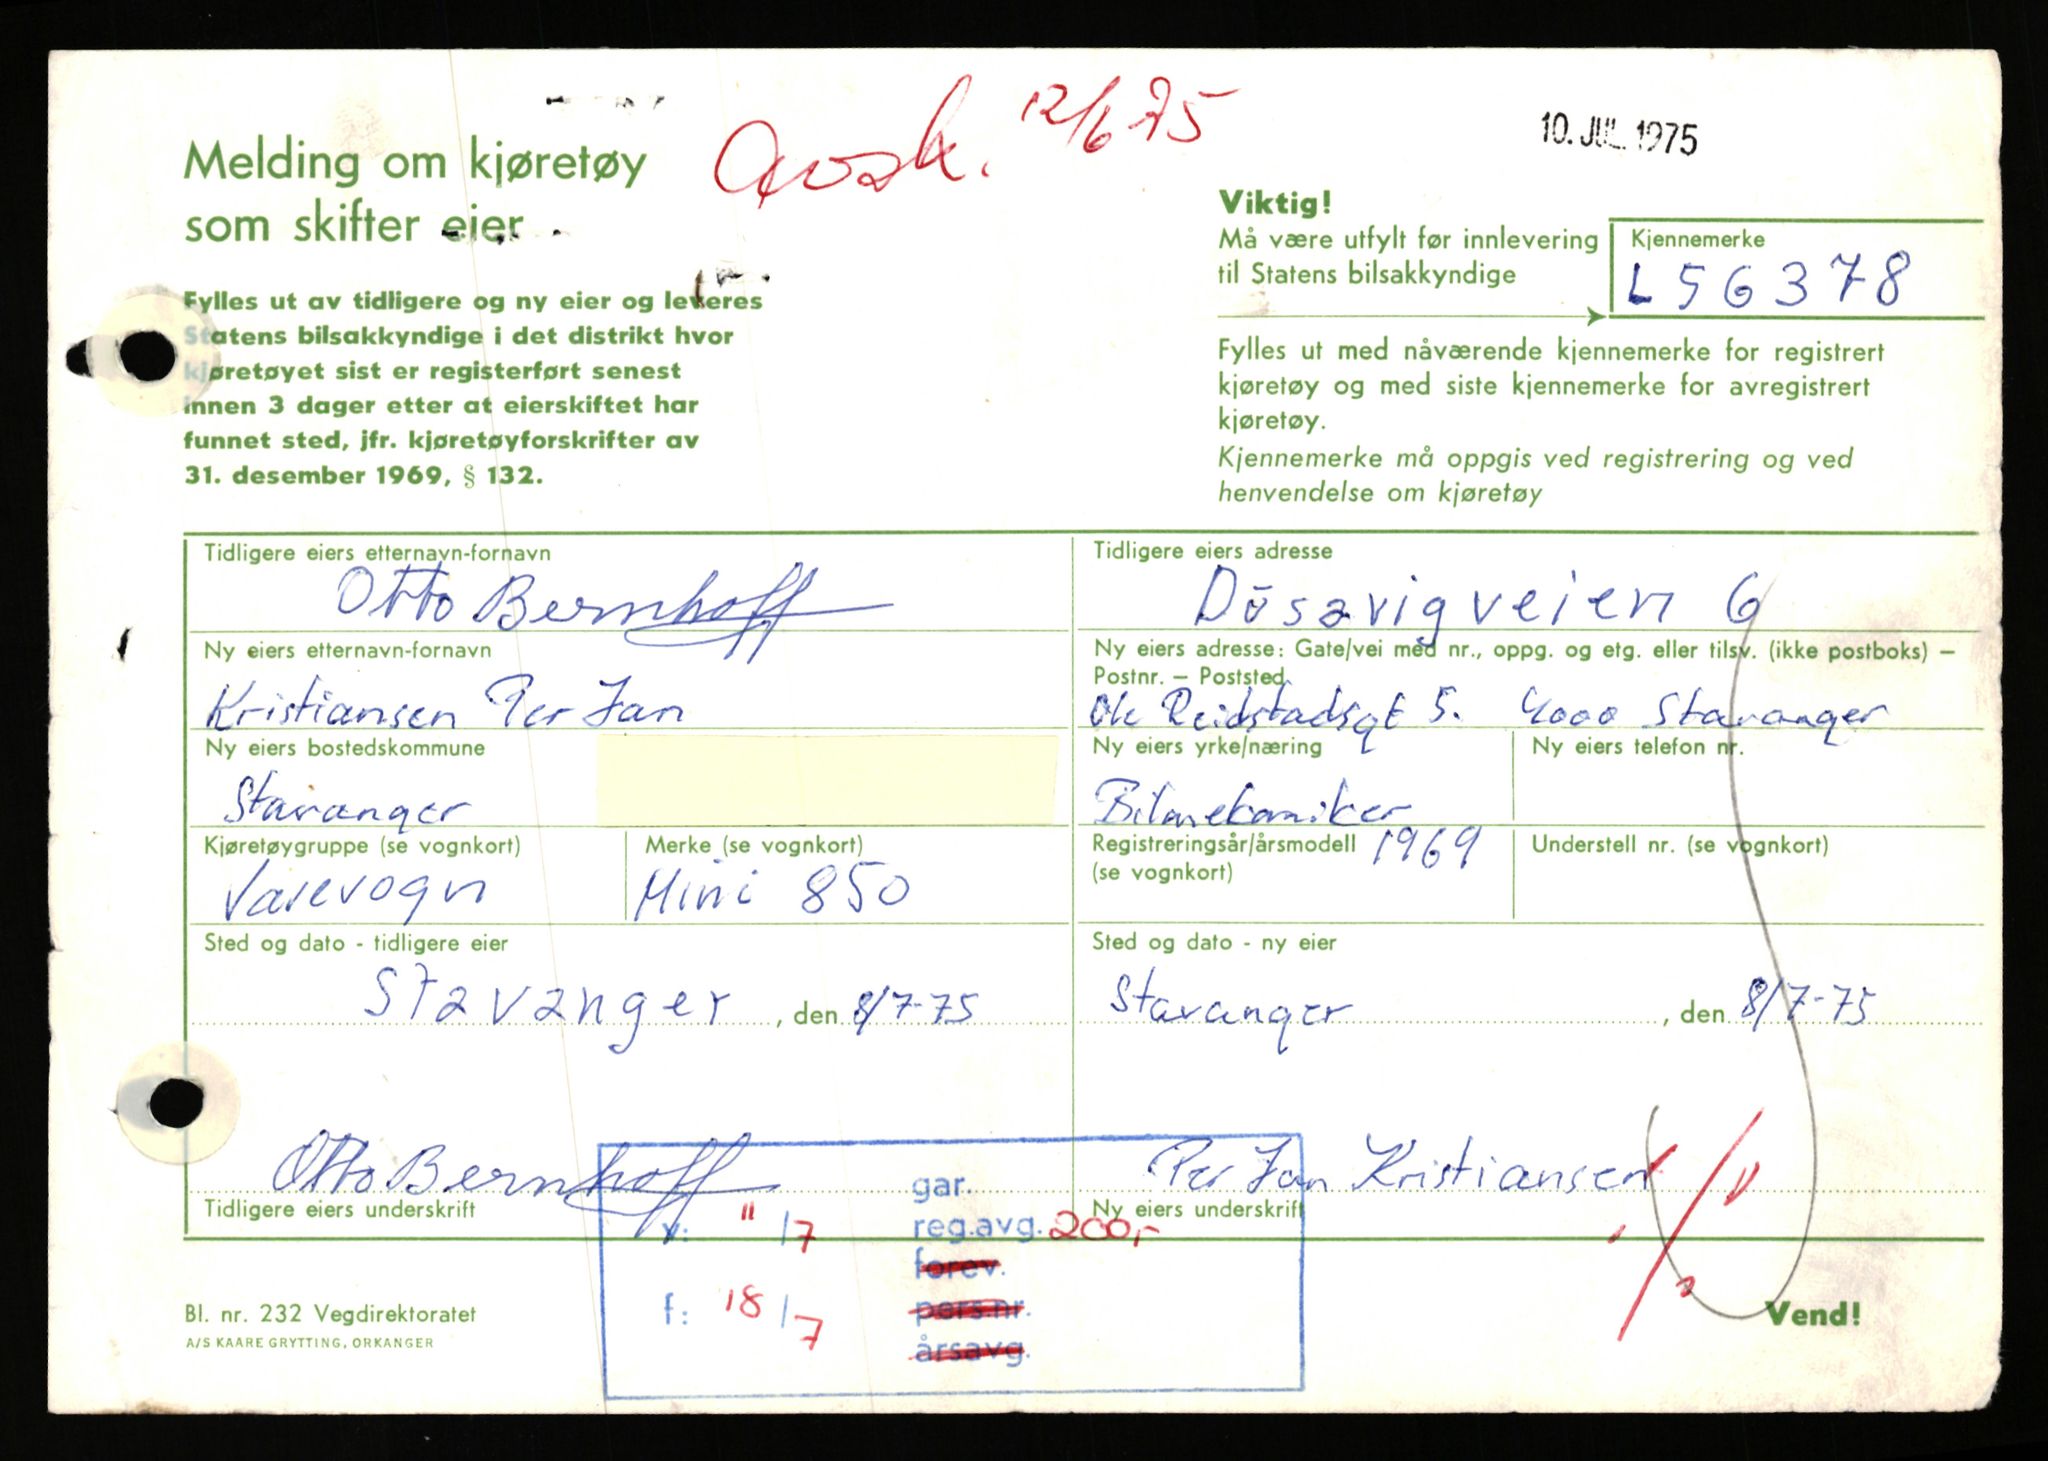 Avsk. 12/6 75
10. JUL. 1975
Melding om kjøretøy
som skifter eier
Viktig!
Må være utfylt før innlevering
til Statens bilsakkyndige
Kjennemerke
L 56378
Fylles ut av tidligere og ny eier og leveres
Statens bilsakkyndige i det distrikt hvor
kjøretøyet sist er registerført senest
innen 3 dager etter at eierskiftet har
funnet sted, jfr. kjøretøyforskrifter av
31. desember 1969, § 132.
Fylles ut med nåværende kjennemerke for registrert
kjøretøy og med siste kjennemerke for avregistrert
kjøretøy.
Kjennemerke må oppgis ved registrering og ved
henvendelse om kjøretøy
Tidligere eiers etternavn-fornavn
Otto Bernhoff
Tidligere eiers adresse
Dusavigveien 6
Ny eiers etternavn-fornavn
Kristiansen Per Jan
Ny eiers adresse: Gate/vei med nr., oppg. og etg. eller tilsv. (ikke postboks) –
Postnr. – Poststed
Ole Reidstadsgt 5. 4000 Stavanger
Ny eiers bostedskommune
Stavanger
Ny eiers yrke/næring
Bilmekaniker
Ny eiers telefon nr.
Kjøretøygruppe (se vognkort)
Varevogn
Merke (se vognkort)
Mini 850
Registreringsår/årsmodell 1969
(se vognkort)
Understell nr. (se vognkort)
Sted og dato - tidligere eier
Stavanger, den 8/7-75
Sted og dato - ny eier
Stavanger, den 8/7-75
Otto Bernhoff
Tidligere eiers underskrift
Per Jan Kristiansen
Ny eiers underskrift
gar.
v: 11/7 reg.avg. 200,-
forev.
f: 18/7 pers.nr.
årsavg.
Bl. nr. 232 Vegdirektoratet
A/S KAARE GRYTTING, ORKANGER
Vend!